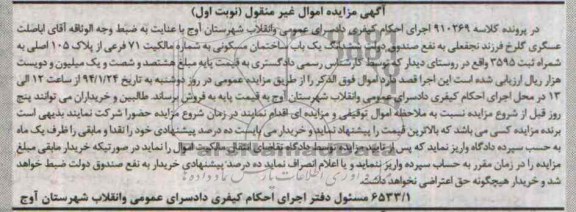 آگهی مزایده اموال غیر منقول (نوبت اول)
در پرونده کلاسه ۹۱۰۲۶۹ اجرای احکام کیفری دادسرای عمومی وانقلاب شهرستان آوج با عنایت به ضبط وجه الوثاقه آقای اباصلت
عسگری گلرخ فرزند نجفعلی به نفع صندوق دولت ششدانگ یک باب ساختمان مسکونی به شماره مالکیت ۷۱ فرعی از پلاک ۱۰۵ اصلی به
شمراه ثبت ۳۵۹۵ واقع در روستای دیدار که توسط کارشناس رسمی دادگستری به قیمت پایه مبلغ هشتصد و شصت و یک میلیون و دویست
هزار ریال ارزیابی شده است این اجرا قصد دارد اموال فوق الذکر را از طریق مزایده عمومی در روز دوشنبه به تاریخ ۹۴/۱/۲۴ از ساعت ۱۲ الی
۱۳ در محل اجرای احکام کیفری دادسرای عمومی وانقلاب شهرستان آوج به قیمت پایه به فروش برساند. طالبین و خریداران می توانند پنج
روز قبل از شروع مزایده نسبت به ملاحظه اموال توقیفی و مزایده ای اقدام نمایند در زمان شروع مزایده حضورا شرکت نمایند بدیهی است
برنده مزایده کسی می باشد که بالاترین قیمت را پیشنهاد نماید و خریدار می بایست ده درصد پیشنهادی خود را نقدا و مابقی را ظرف یک ماه
به حساب سپرده دادگاه واریز نماید که پس از تایید مزایده توسط دادگاه تقاضای انتقال مالکیت اموال را نماید در صورتیکه خریدار مابقی مبلغ
مزایده را در زمان مقرر به حساب سپرده واریز ننماید و یا اعلام انصراف نماید ده درصد پیشنهادی خریدار به نفع صندوق دولت ضبط خواهد
شد و خریدار هیچگونه حق اعتراضی نخواهد داشت.
۶۵۳۳/۱ مسئول دفتر اجرای احکام کیفری دادسرای عمومی وانقلاب شهرستان آوج